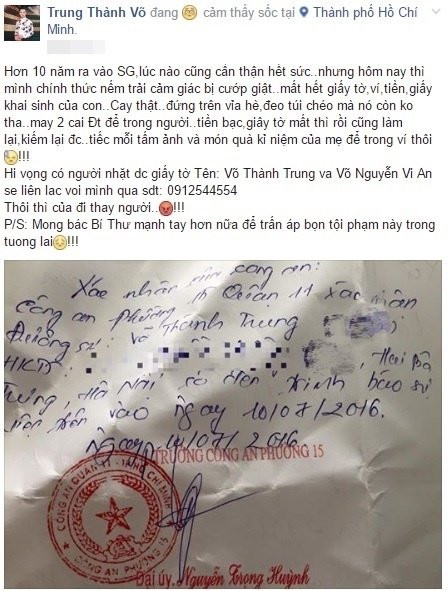 Trung Thành Võ đang cảm thấy sốc tại Thành phố Hồ Chí
Minh.
Hơn 10 năm ra vào SG,lúc nào cũng cẩn thận hết sức..nhưng hôm nay thì
mình chính thức nếm trải cảm giác bị cướp giật..mất hết giấy tờ,ví,tiền,giấy
khai sinh của con..Cay thật..đứng trên vỉa hè,đeo túi chéo mà nó còn ko
tha..may 2 cai Đt để trong người..tiền bạc,giây tờ mất thì rồi cũng làm
lại,kiếm lại đc..tiếc mỗi tấm ảnh và món quà kỉ niệm của mẹ để trong ví thôi
!!!
Hi vọng có người nhặt dc giấy tờ Tên: Võ Thành Trung va Võ Nguyễn Vi An
se liên lac voi mình qua sdt: 0912544554
Thôi thì của đi thay người..!!!
P/S: Mong bác Bí Thư mạnh tay hơn nữa để trấn áp bọn tội phạm này trong
tuong lai!!!
Xác nhận của công an:
Công an phường 15 Quận 11 xác nhận
Đương sự: Võ Thành Trung
HKTT: Hai Bà
Trưng, Hà Nội có đến trình báo sự
việc trên vào ngày 10/07/2016.
Ngày 14/07/2016.
TRƯỞNG CÔNG AN PHƯỜNG 15
CÔNG AN PHƯỜNG 15
Đại úy. Nguyễn Trọng Huỳnh